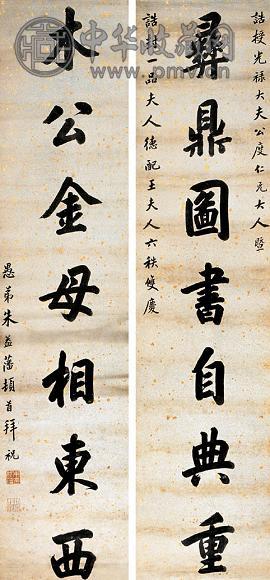 中华收藏网
誥授光禄大夫公度仁兄大人暨
誥封一品夫人德配王夫人六秩雙慶
彝鼎圖書自典重
木公金母相東西
愚弟朱益藩頓首拜祝